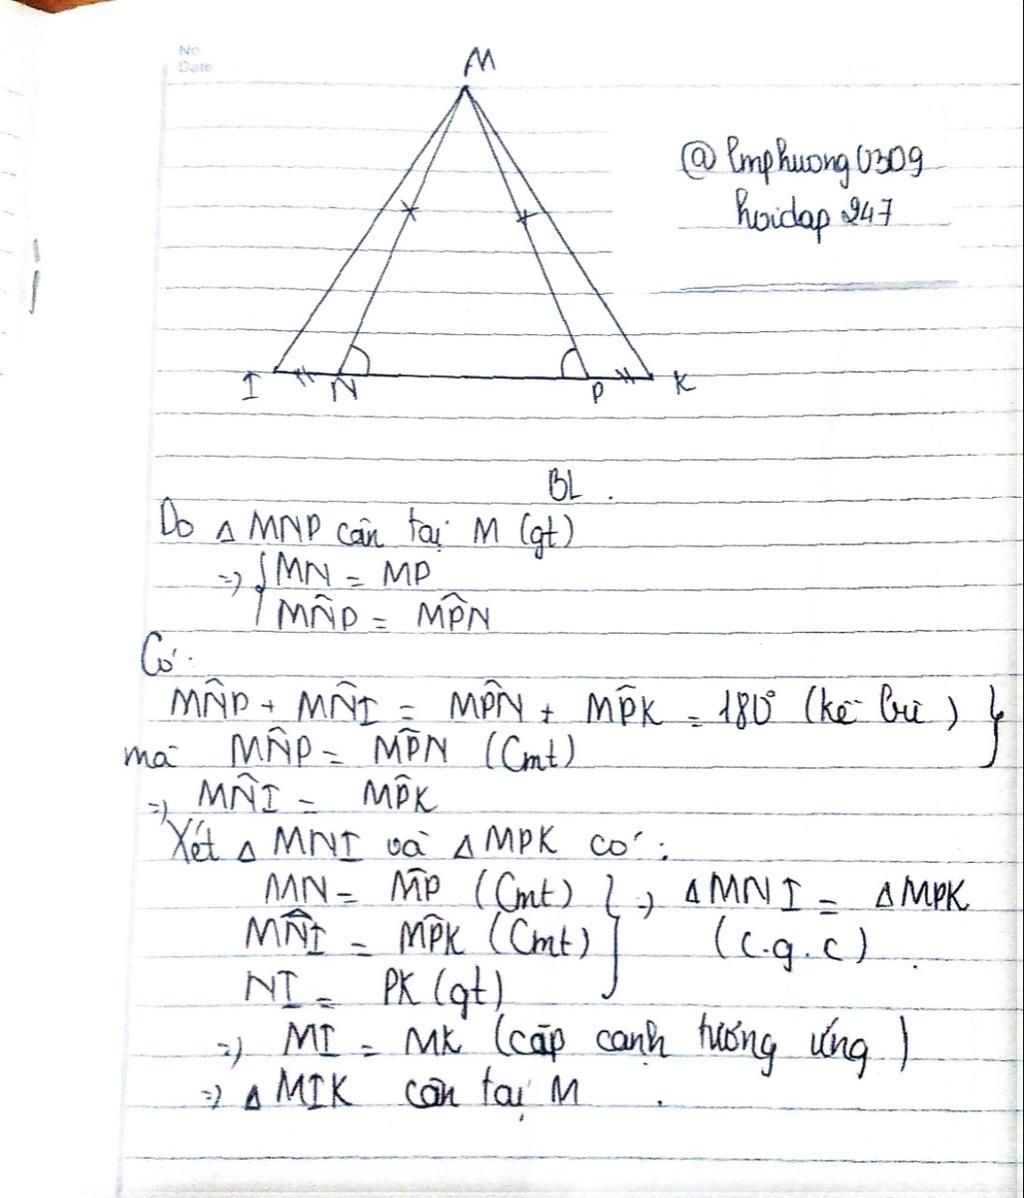 No.
Date
M
@ lmphuong0309
hoidap 247
I N P K
BL.
Do △ MNP cân tại M (gt)
=> { MN = MP
MN̂P = MP̂N
Có:
MN̂P + MN̂I = MP̂N + MP̂K = 180° (kề bù) }
mà MN̂P = MP̂N (Cmt)
=> MN̂I = MP̂K
Xét △ MNI và △ MPK có:
MN = MP (Cmt) } => △ MNI = △ MPK
MN̂I = MP̂K (Cmt) (c.g.c)
NI = PK (gt)
=> MI = MK (cặp cạnh tương ứng)
=> △ MIK cân tại M.